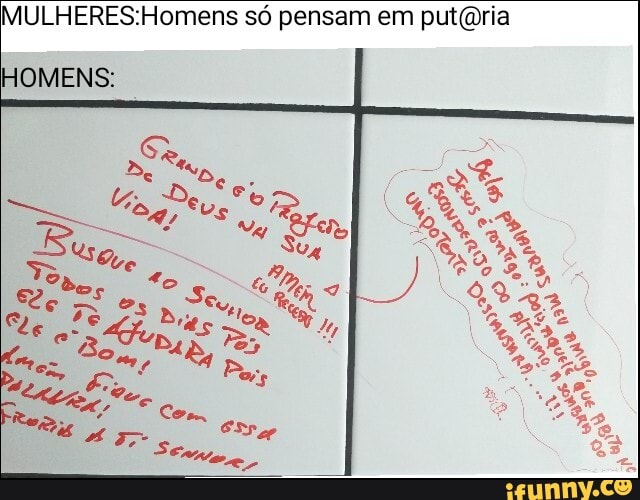 MULHERES:Homens só pensam em put@ria
HOMENS:
GRANDE É O PROJETO
DE DEUS NA SUA
VIDA!
AMÉM
EU RECEBO !!!
BUSQUE AO SENHOR
TODOS OS DIAS POIS
ELE TE AJUDARA POIS
ELE É BOM!
AMÉM FIQUE COM ESSA
PALAVRA!
GRORIA A TI SENHOR!
Belas PALAVRAS MEU AMIGO,
JESUS é contigo: pois AQUELE QUE HABITA NO
ESCONDERIJO DO ALTICIMO A SOMBRA DO
UNIPOTENTE DESCANSARA....!!!
ifunny.co